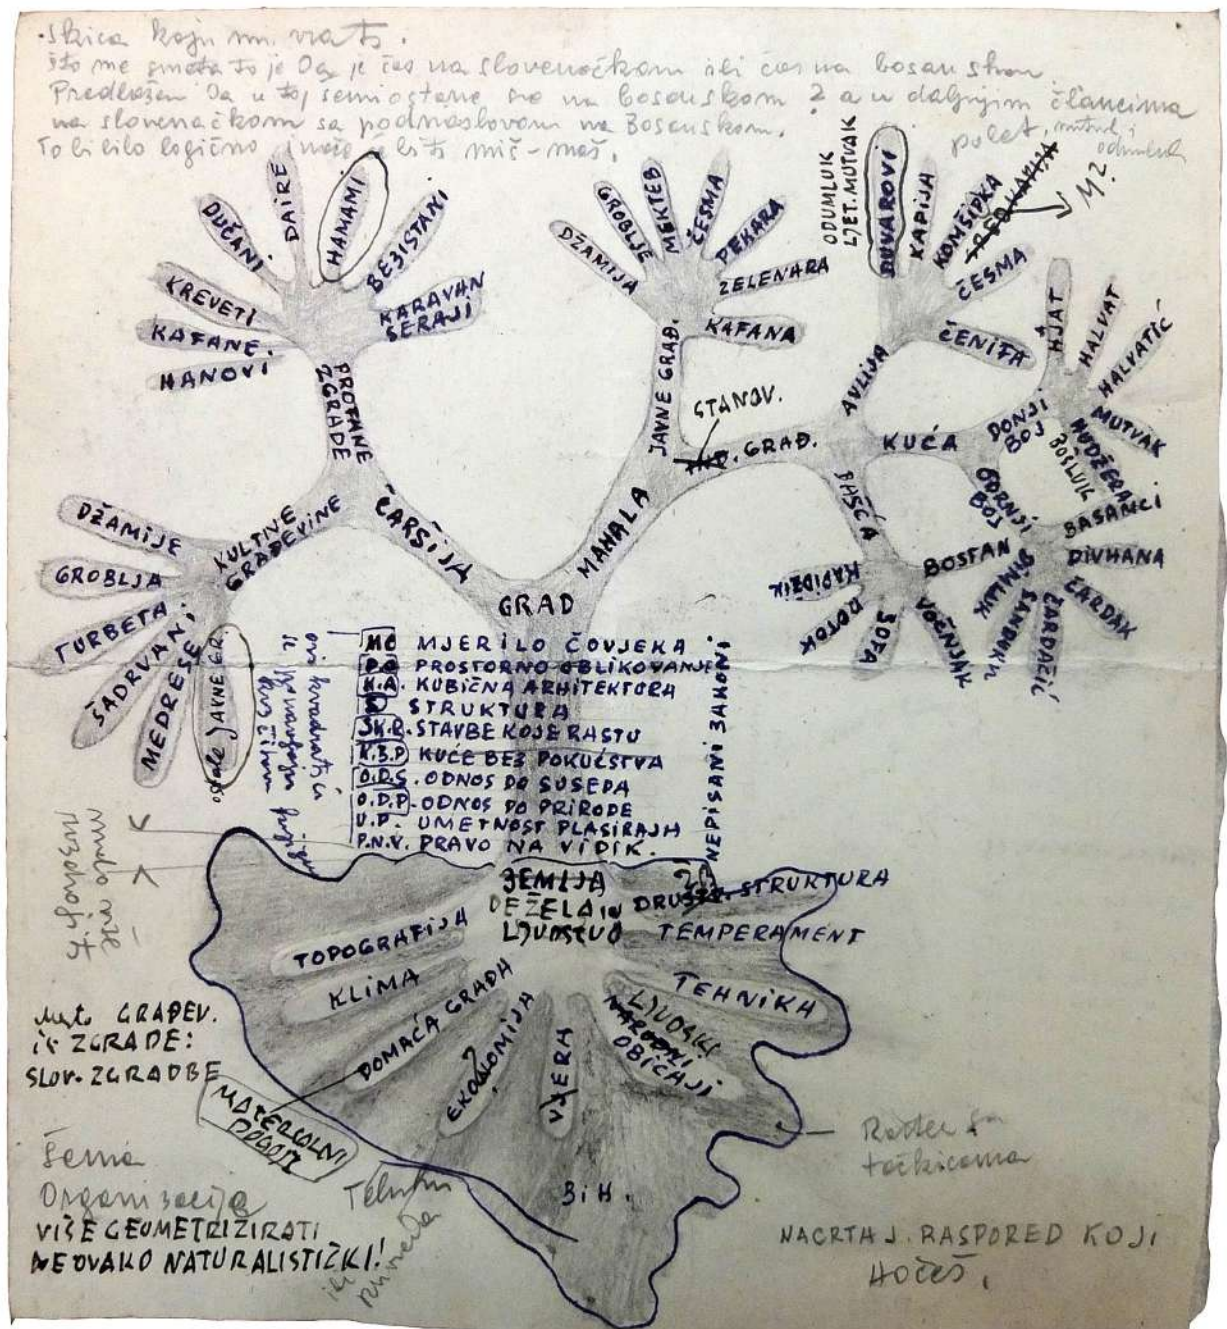 Skica koju mi vrati.
što me smeta to je da je čas na slovenačkom ili čas na bosanskom.
Predlažem da u toj šemi ostane sve na bosanskom ? a u daljnjim člancima
na slovenačkom sa podnaslovom na Bosanskom.
To bi bilo logično inače će biti miš-maš.
DUĆANI
DAIRE
HAMAMI
BEZISTANI
KARAVAN
SERAJI
KREVETI
KAFANE.
HANOVI
PROFANE
ZGRADE
DŽAMIJE
GROBLJA
TURBETA
ŠADRVANI
MEDRESE
ostale JAVNE GR.
KULTNE
GRAĐEVINE
ČARŠIJA
DŽAMIJA
GROBLJE
MEKTEB
ČESMA
PEKARA
ZELENARA
KAFANA
JAVNE GRAĐ.
MAHALA
STANOV.
GRAĐ.
ODUMLUK
LJET. MUTVAK
DUVAROVI
KAPIJA
KOMŠIDKA
M?
ČESMA
ČENIFA
AVLIJA
KUĆA
DONJI
BOJ
HJAT
HALVAT
HALVATIĆ
MUTVAK
HUDŽERA
BOŠLUK
GORNJI
BOJ
BASAMCI
DIVHANA
ČARDAK
ČARDAČIĆ
ŠANDUK
BINLUK
BAŠČA
BOSTAN
VOĆNJAK
SOFA
POTOK
KAPIDŽIK
GRAD
MČ MJERILO ČOVJEKA
P.O PROSTORNO OBLIKOVANJE
K.A. KUBIČNA ARHITEKTURA
S STRUKTURA
S.K.R. STAVBE KOJE RASTU
K.B.P KUĆE BEZ POKUĆSTVA
O.D.S. ODNOS DO SUSEDA
O.D.P. ODNOS DO PRIRODE
U.P. UMETNOST PLASIRAJH
P.N.V. PRAVO NA VIDIK.
NEPISANI ZAKONI
ovi kvadratići
se ponavljaju
kroz
knjigu
malo niže
ZEMLJA
DEŽELA in
LJUDSTVO
DRUŠTV. STRUKTURA
TEMPERAMENT
TEHNIKA
LJUDSKI
NARODNI
OBIČAJI
VJERA
EKONOMIJA
DOMAĆA GRAĐA
KLIMA
TOPOGRAFIJA
BiH.
mesto GRAĐEV.
je ZGRADE:
SLOV. ZGRADBE
MATERIALNI
POGOJI
šema
Organizacija
VIŠE GEOMETRIZIRATI
NE OVAKO NATURALISTIČKI!
Raster sa
tačkicama
NACRTAJ. RASPORED KOJI
HOĆEŠ.